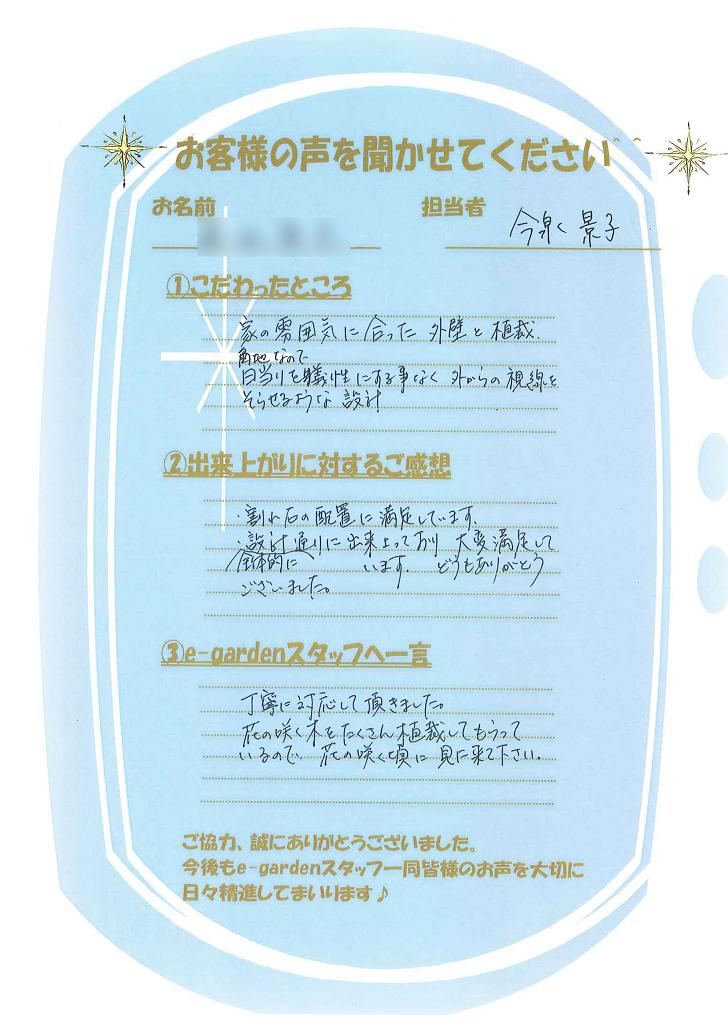 お客様の声を聞かせてください^^
お名前 担当者 今泉 景子
①こだわったところ
家の雰囲気に合った 外壁と植栽.
角地なので
日当りを犠牲にする事なく 外からの視線を
そらせるような 設計
②出来上がりに対するご感想
・割れ石の配置に満足しています.
・設計通りに出来上っており 大変満足して
全体的に います. どうもありがとう
ございました。
③e-gardenスタッフへ一言
丁寧に対応して頂きました。
花の咲く木をたくさん植栽してもらって
いるので、花の咲く頃に 見に来て下さい。
ご協力、誠にありがとうございました。
今後もe-gardenスタッフ一同皆様のお声を大切に
日々精進してまいります♪